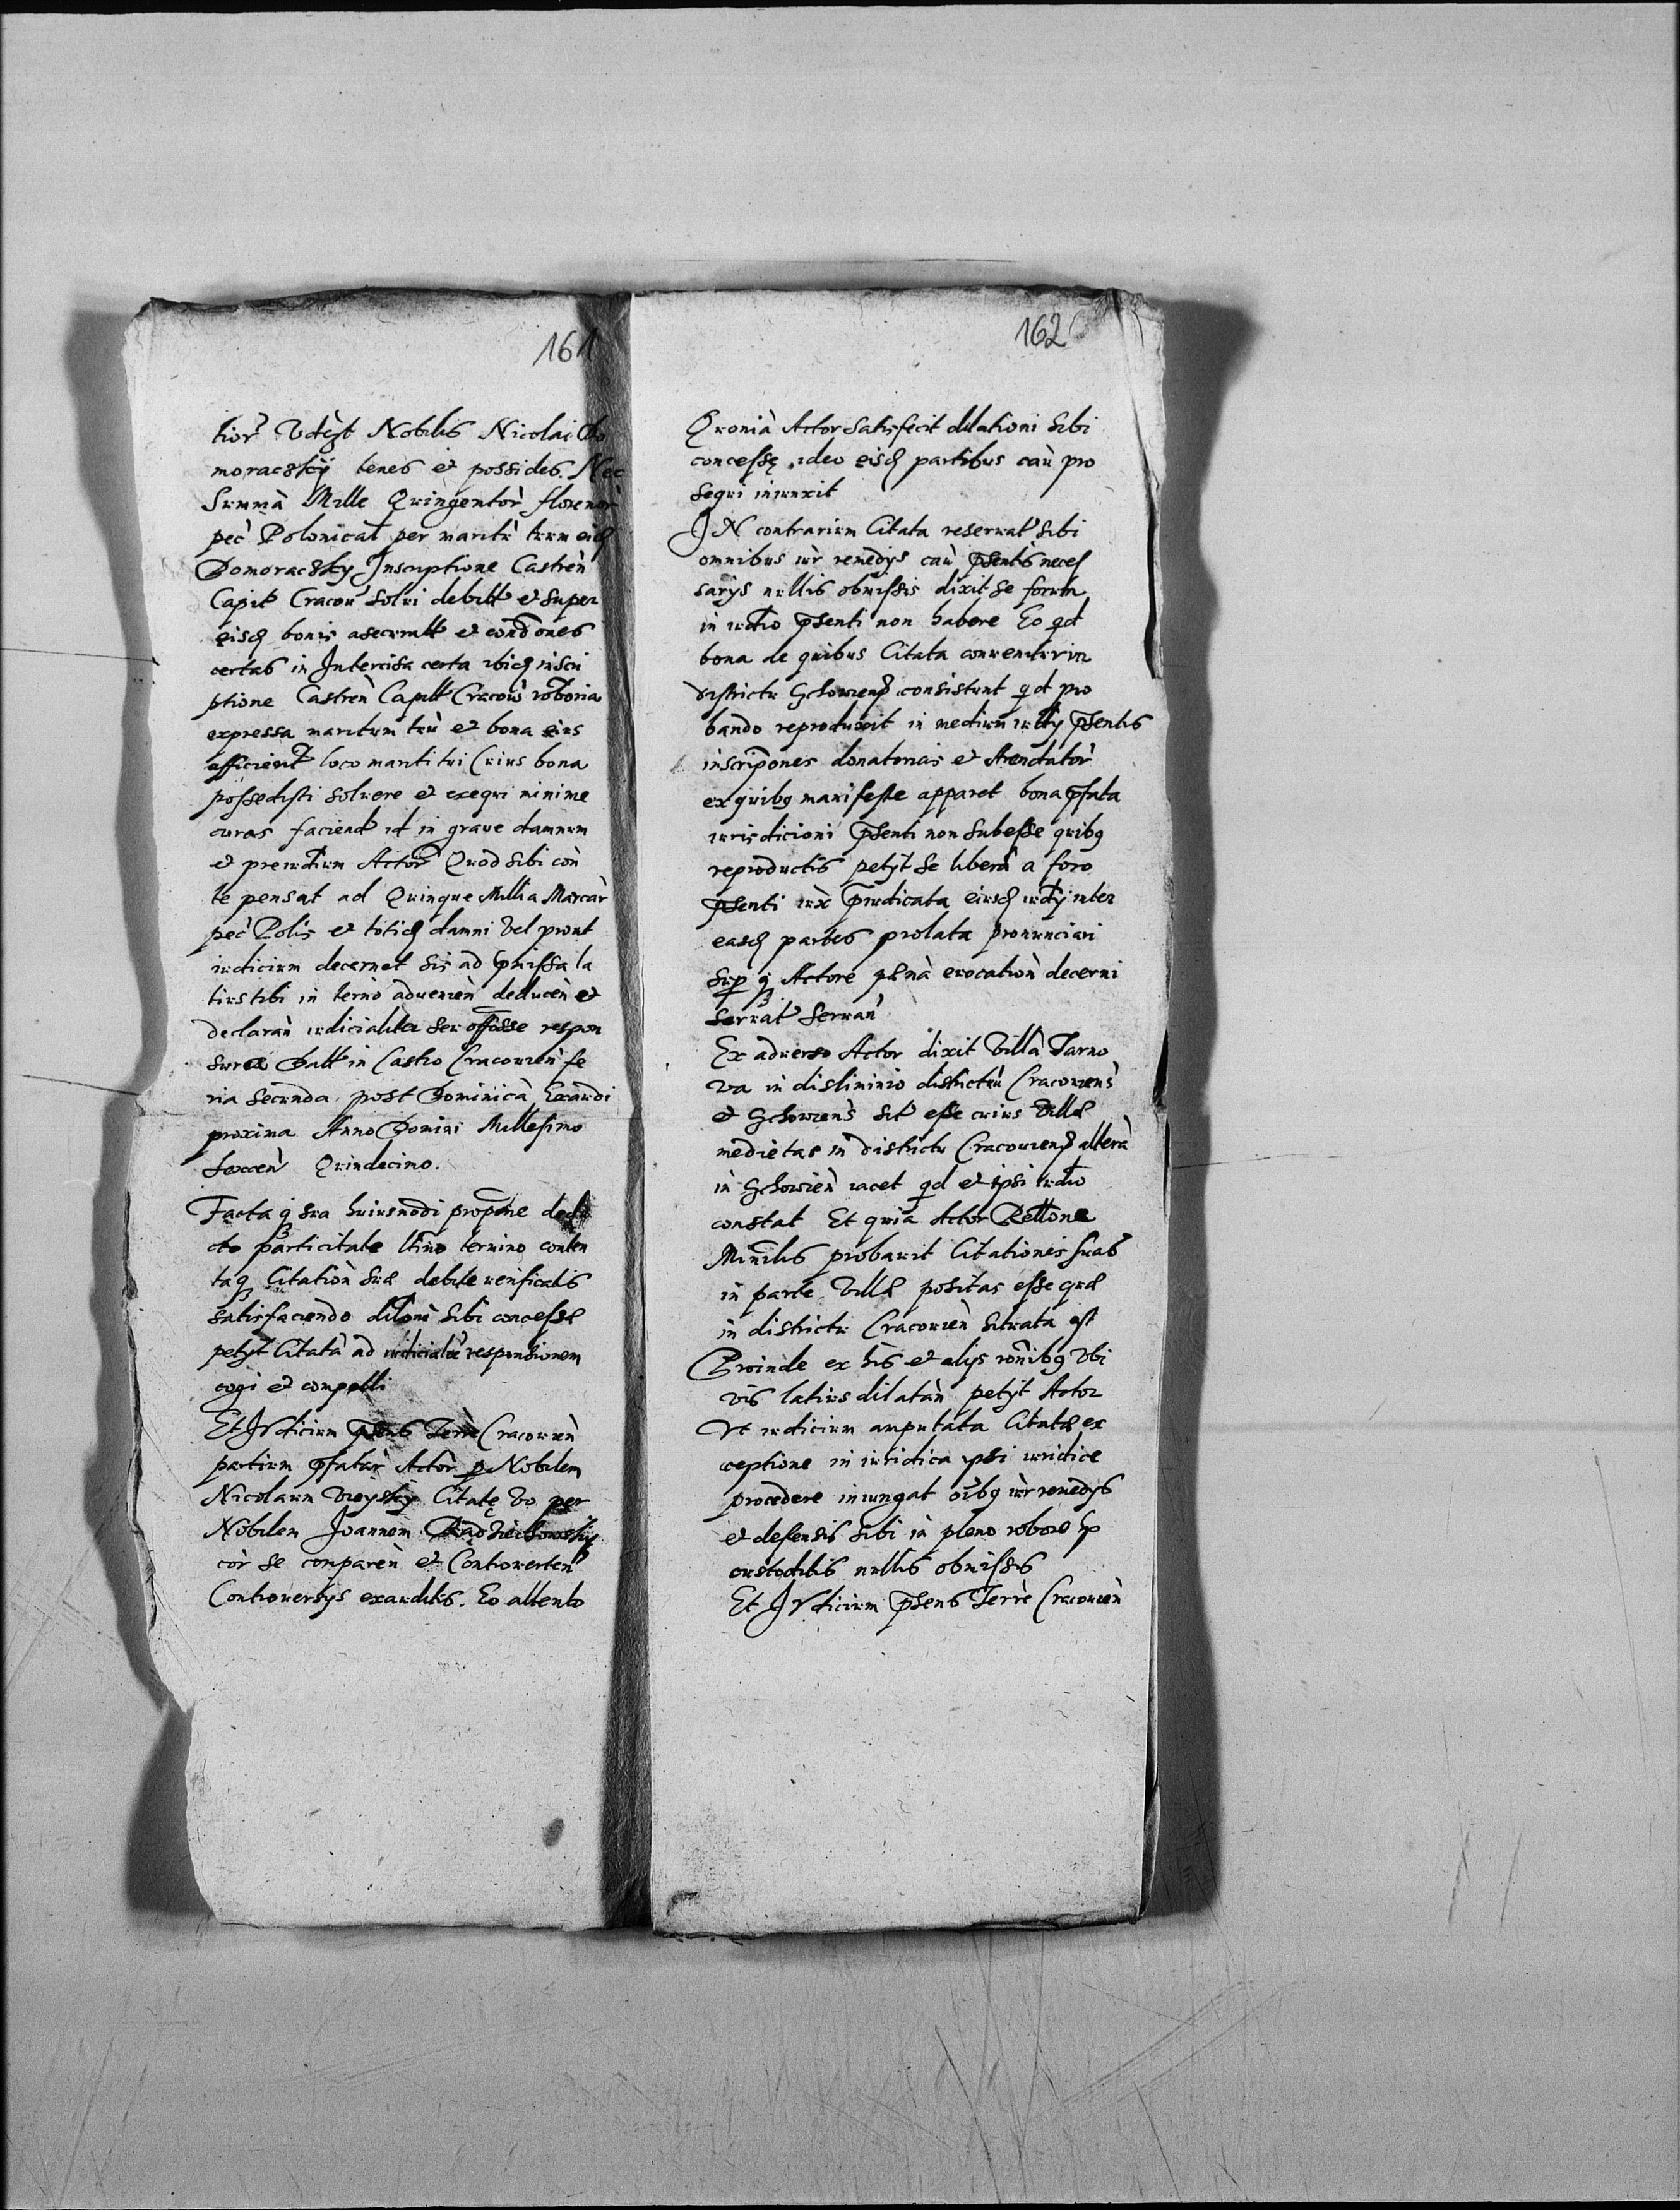 161
tior Vdest Nobilis Nicolai Do
moraczkÿ tenes et possides. Nec
Summà Mille Quingentor̀ florenor̀
pec̀ Polonicał per maritū tuum eisd
Domoraczky Inscriptione Castreǹ
Capit Cracou solui debitt et super
eisd bonis asecuratt et conđones
certas in Intercisa certa ibid inscri
ptione Castreǹ Capitt Cracoù roboria
expressa maritum tuù et bona eius
afficient loco mariti tui Cuius bona
possedisti soluere et exequi minime
curas faciend id in graue damnum
et preiuđium Actor Quod sibi coǹ
te pensat ad Quinque Millia Marcar̀
pec̀ Polis et totid damni Vel prout
iudicium decernet Sis ad pmissa la
tius tibi in terìno aduenieǹ deducèn et
declaraǹ iudicialiter seu offose respon
sura Datt in Castro Cracouieǹ fe
ria secunda post Dominicà Exaudi
proxima Anno Domini Millesimo
Sexceǹ Quindecimo.
Facta q̨ sua huiusmodi propone dedu
cto particitate łtimo termino conten
taq̨ Citatioǹ suæ debite verificatis
satisfaciendo diłoni sibi concessæ
petyt Citatà ad iudicialē responsionem
cogi et compelli
Et IVdicium psens Terrè Cracouieǹ
partium pfatar̀ Actor̀ p Nobilem
Nicolaum Citatę Vo per
Nobilem Joannem
cor̀ se compareǹ et Controuerten
Controuersys exauditis. Eo attento
162
Quonià Actor satisfecit dilationi sibi
concessę ideo eisd partibus caù pro
sequi iniunxit
IN contrarium Citata reseruat sibi
omnibus iur̀ remedys caù psentis neces
sarys nullis obmissis dixit se forum
in iuđio psenti non habere Eo qd
bona de quibus Citata conuenitur in
districtu Xchouiens consistunt qd pro
bando reproduxit in medium iuđij psentis
inscripones donatorias et Arendator̀
ex quibq manifeste apparet bona pfata
iurisdicioni psenti non subesse quibq
reproductis petyt se liberà a foro
psenti iux̀ piudicata eiusd iuđy inter
easd partes prolata pronunciari
sup q̨ Actore pænà euocatioǹ decerni
seruat seruaǹ
Ex aduerso Actor dixit Villà Tarno
va in disliminio districtuū Cracouiens̀
et Xchouiens̀ sit esse cuius Villæ
medietas in districtu Cracouiens alterà
in Xchouieǹ iacet qd et ipsi iuđio
constat Et quia Actor Rellone
Minilis probauit Citationes suas
in parte Villæ positas esse quæ
in districtu Cracouieǹ situata est
Proinde ex his et alijs ronibq Vbi
vis latius dilataǹ petyt Actor
Vt iudicium amputata Citatæ ex
ceptione in iuridica ipsi iuridice
procedere iniungat oībq iur̀ remedys
et defensis sibi in pleno robore sp
custoditis nullis obmissis
Et IVdicium psens Terrè Cracouieǹ